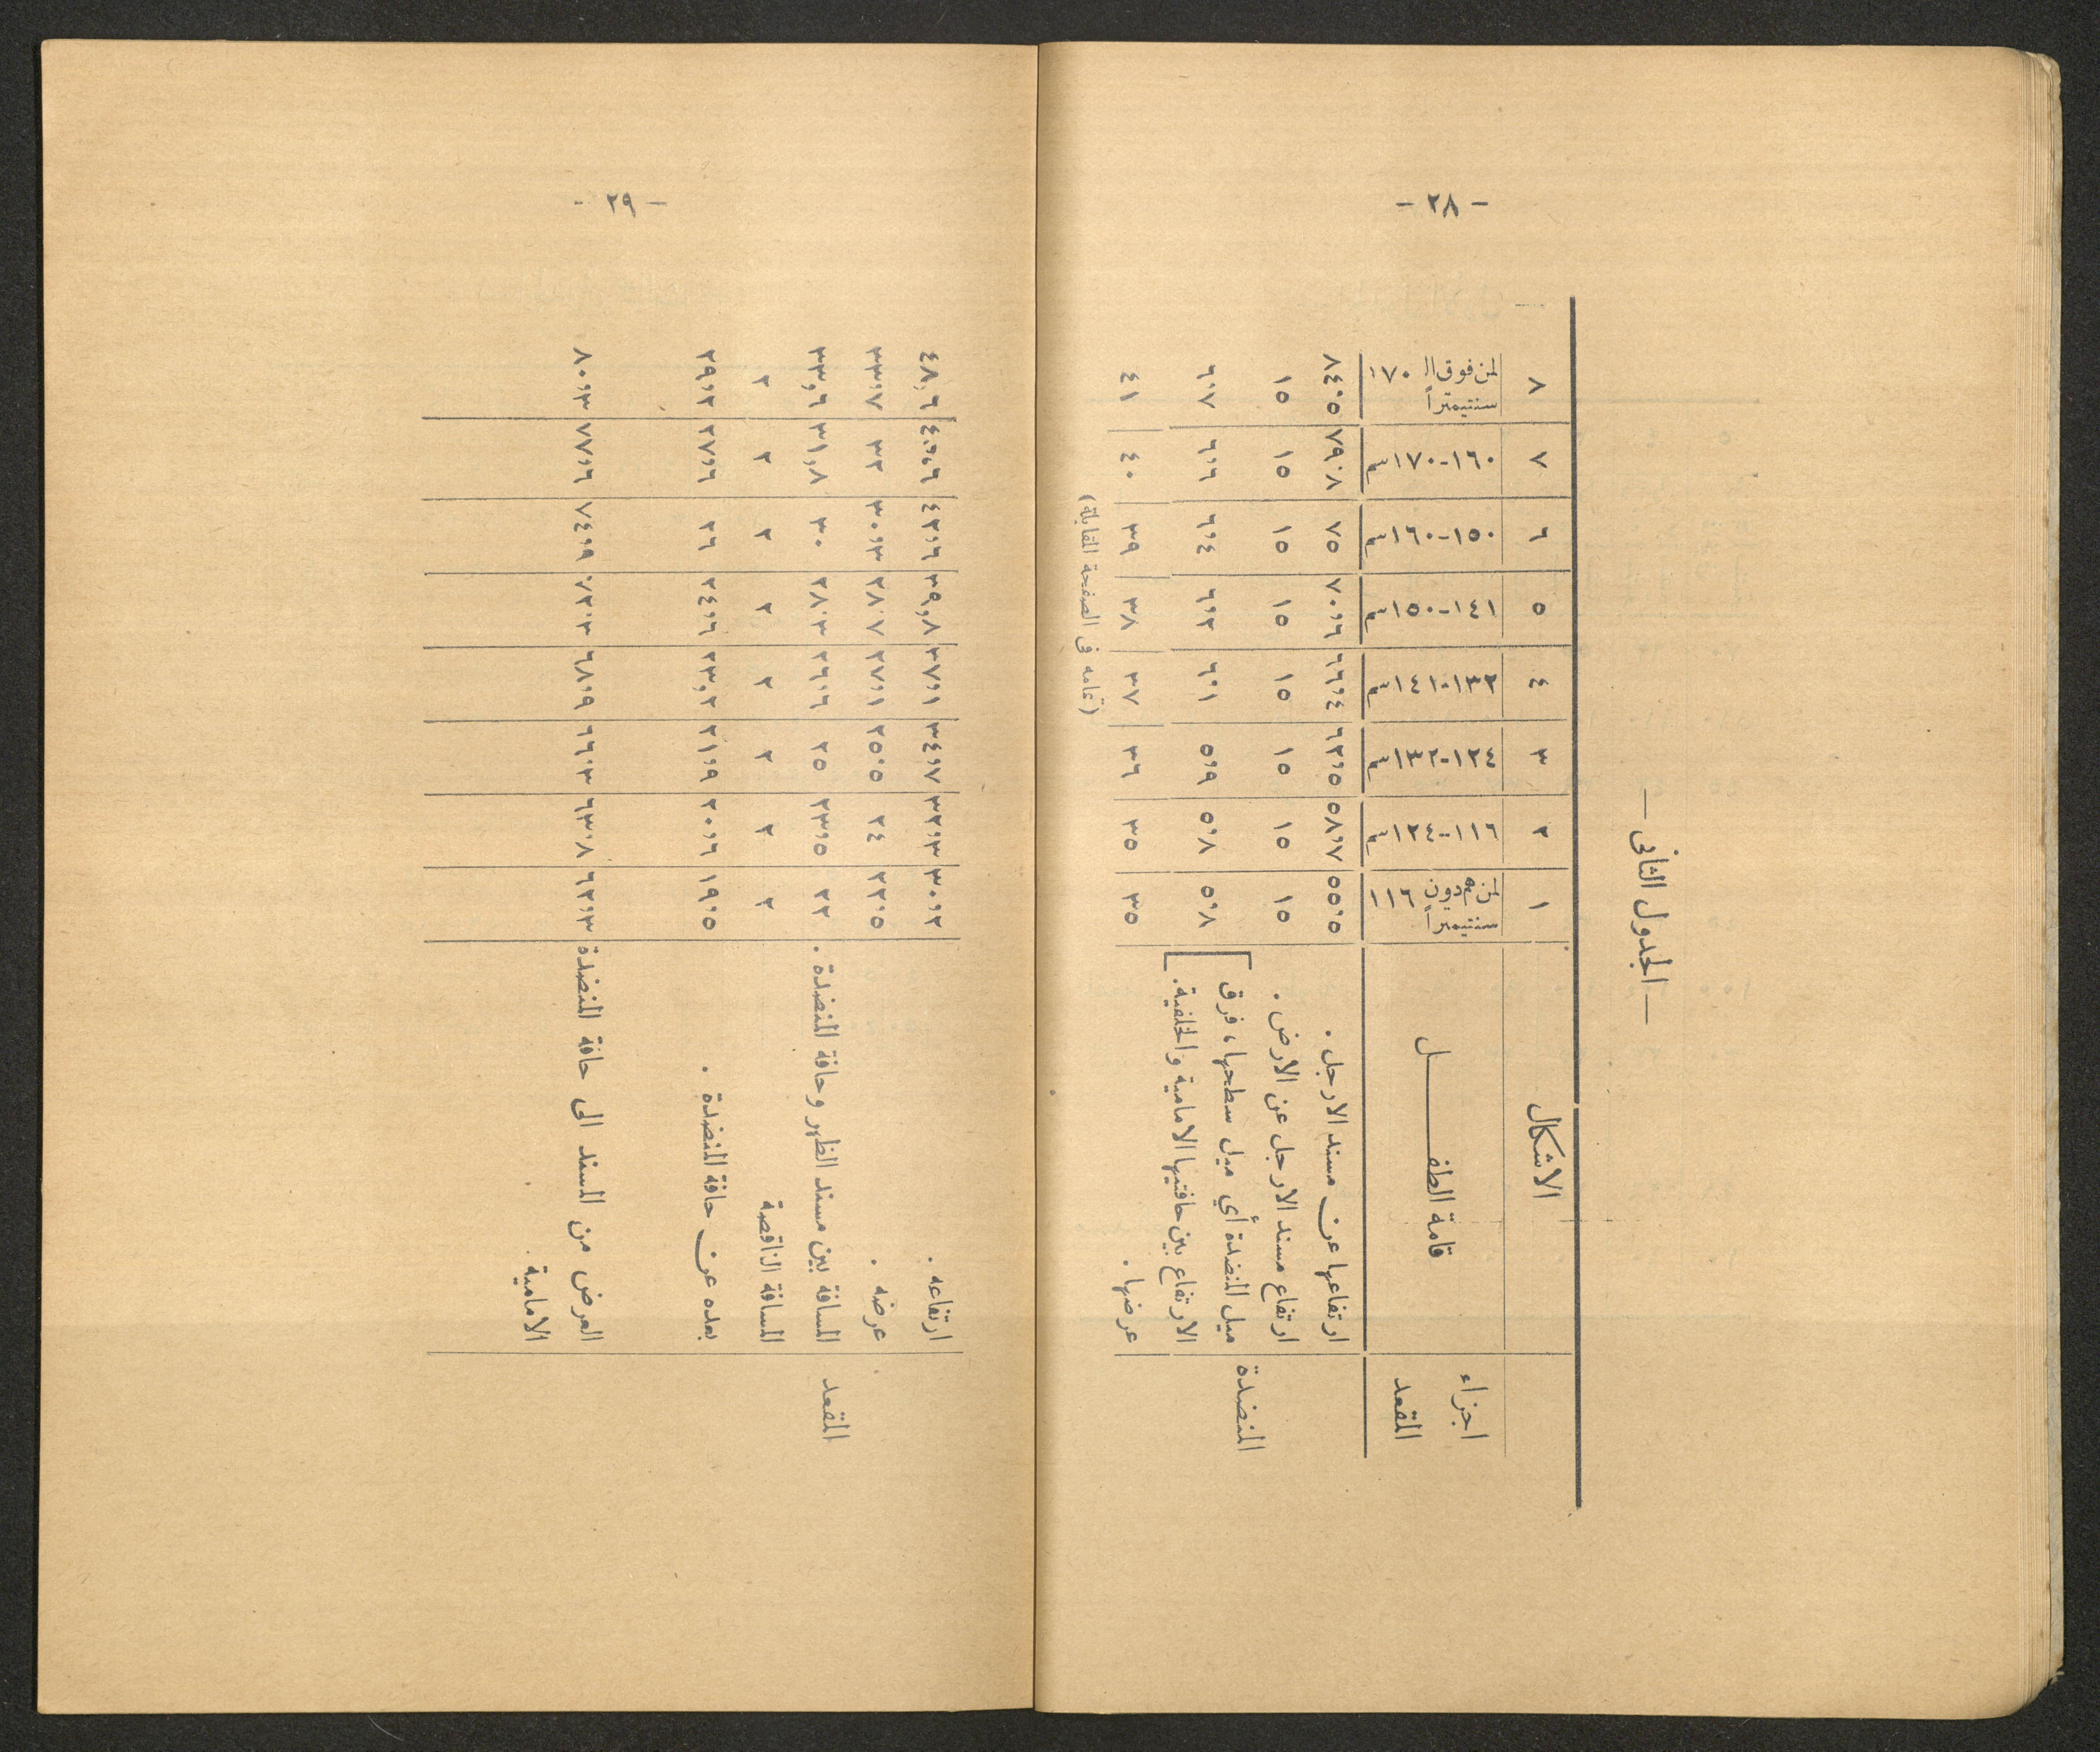 - ٢٨ -
— الجدول الثانى —
الاشكال ١ ٢ ٣ ٤ ٥ ٦ ٧ ٨
اجزاء المقعد قامة الطفـــــل لمن هم دون ١١٦ سنتيمتراً ١١٦-١٢٤ سم ١٢٤-١٣٢ سم ١٣٢-١٤١ سم ١٤١-١٥٠ سم ١٥٠-١٦٠ سم ١٦٠-١٧٠ سم لمن فوق الـ ١٧٠ سنتيمتراً
المنضدة
ارتفاعها عن مسند الارجل . ٥٥,٥ ٥٨,٧ ٦٢,٥ ٦٦,٤ ٧٠,٦ ٧٥ ٧٩,٨ ٨٤,٥
ارتفاع مسند الارجل عن الارض . ١٥ ١٥ ١٥ ١٥ ١٥ ١٥ ١٥ ١٥
ميل المنضدة أي ميل سطحها ، فرق
الارتفاع بين حافتيها الامامية والخلفية . ٥,٨ ٥,٨ ٥,٩ ٦,١ ٦,٣ ٦,٤ ٦,٦ ٦,٧
عرضها . ٣٥ ٣٥ ٣٦ ٣٧ ٣٨ ٣٩ ٤٠ ٤١
( تمامه فى الصفحة المقابلة )
- ٢٩ -
المقعد
ارتفاعه . ٣٠,٢ ٣٢,٣ ٣٤,٧ ٣٧,١ ٣٩,٨ ٤٢,٦ ٤٨,٦
عرضه . ٢٢,٥ ٢٤ ٢٥,٥ ٢٧,١ ٢٨,٧ ٣٠,٣ ٣٢ ٣٣,٧
المسافة بين مسند الظهر وحافة المنضدة . ٢٢ ٢٣,٥ ٢٥ ٢٦,٦ ٢٨,٣ ٣٠ ٣١,٨ ٣٣,٦
المسافة الناقصة ٢ ٢ ٢ ٢ ٢ ٢ ٢ ٢
بعده عن حافة المنضدة . ١٩,٥ ٢٠,٦ ٢١,٩ ٢٣,٢ ٢٤,٦ ٢٦ ٢٧,٦ ٢٩,٢
العرض من المسند الى حافة المنضدة ٦٢,٣ ٦٣,٨ ٦٦,٣ ٦٨,٩ ٧٢,٣ ٧٤,٩ ٧٧,٦ ٨٠,٣
الامامية